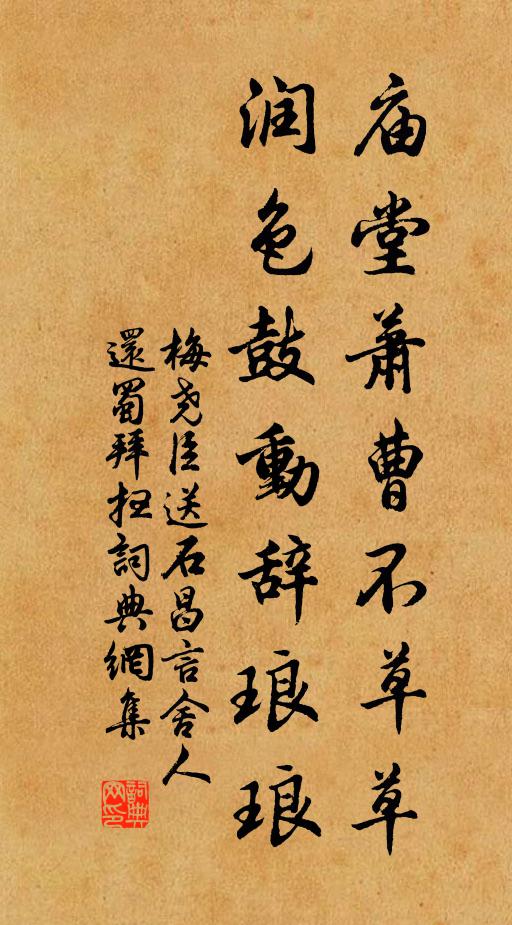 庙堂萧曹不草草
润色鼓動辞琅琅
梅尧臣送石昌言舍人
還蜀拜扫詞典網集
詞典网印